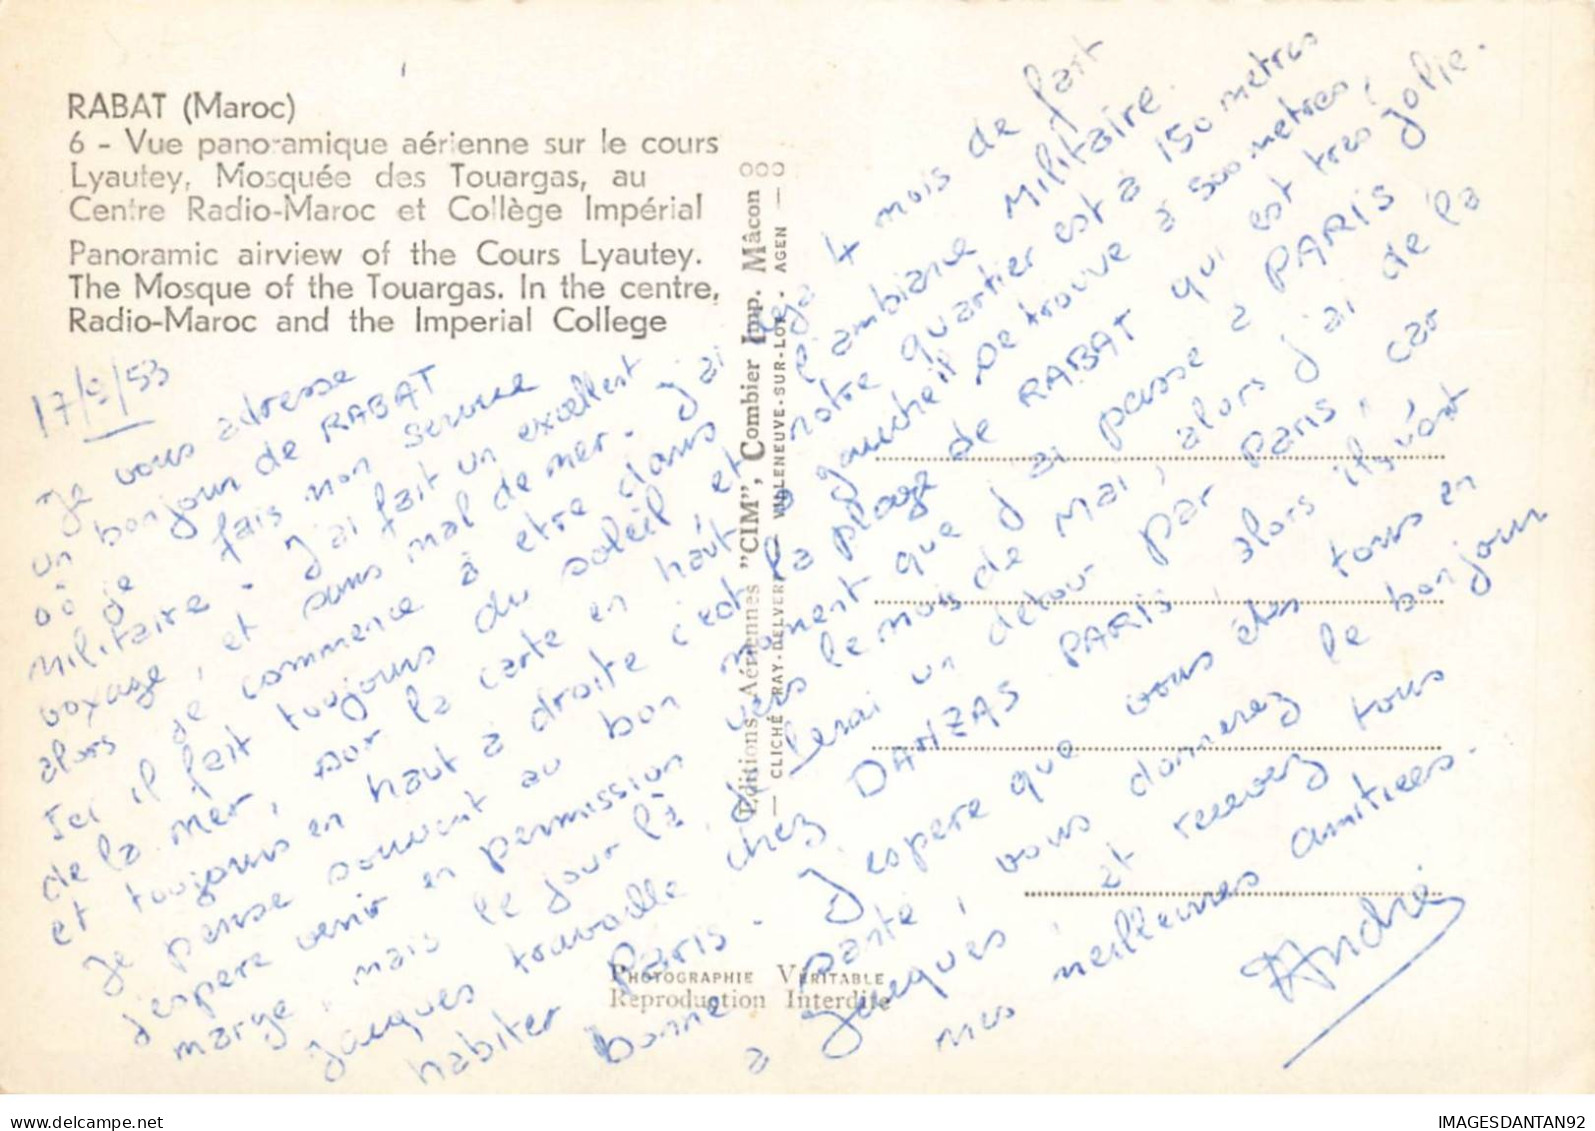 RABAT (Maroc)
6 - Vue panoramique aérienne sur le cours
Lyautey, Mosquée des Touargas, au
Centre Radio-Maroc et Collège Impérial
Panoramic airview of the Cours Lyautey.
The Mosque of the Touargas. In the centre,
Radio-Maroc and the Imperial College
17/9/53
Je vous adresse
un bonjour de RABAT
où je fais mon service
militaire - j'ai fait un excellent
voyage, et sans mal de mer - j'ai déjà 4 mois de fait
alors je commence à etre dans l'ambiance Militaire.
Ici il fait toujours du soleil, et notre quartier est à 150 metres
de la mer, sur la carte en haut à gauche il se trouve à 500 metres,
et toujours en haut a droite c'est la plage de RABAT qui est tres jolie.
Je pense souvent au bon moment que j'ai passé a PARIS
J'espere venir en permission vers le mois de Mai, alors j'ai de la
marge, mais le jour là je ferai un detour par Paris, car
Jacques travaille chez DANZAS PARIS, alors il vont
habiter Paris - J'espere que vous êtes tous en
bonne santé, vous donnerez le bonjour
a Jacques, et recevez tous
mes meilleures amitiees.
André
Editions Aériennes "CIM", Combier Imp. Mâcon
— CLICHÉ RAY-DELVERT — VILLENEUVE-SUR-LOT - AGEN —
PHOTOGRAPHIE VÉRITABLE
Reproduction Interdite
IMAGESDANTAN92
delcampe.net